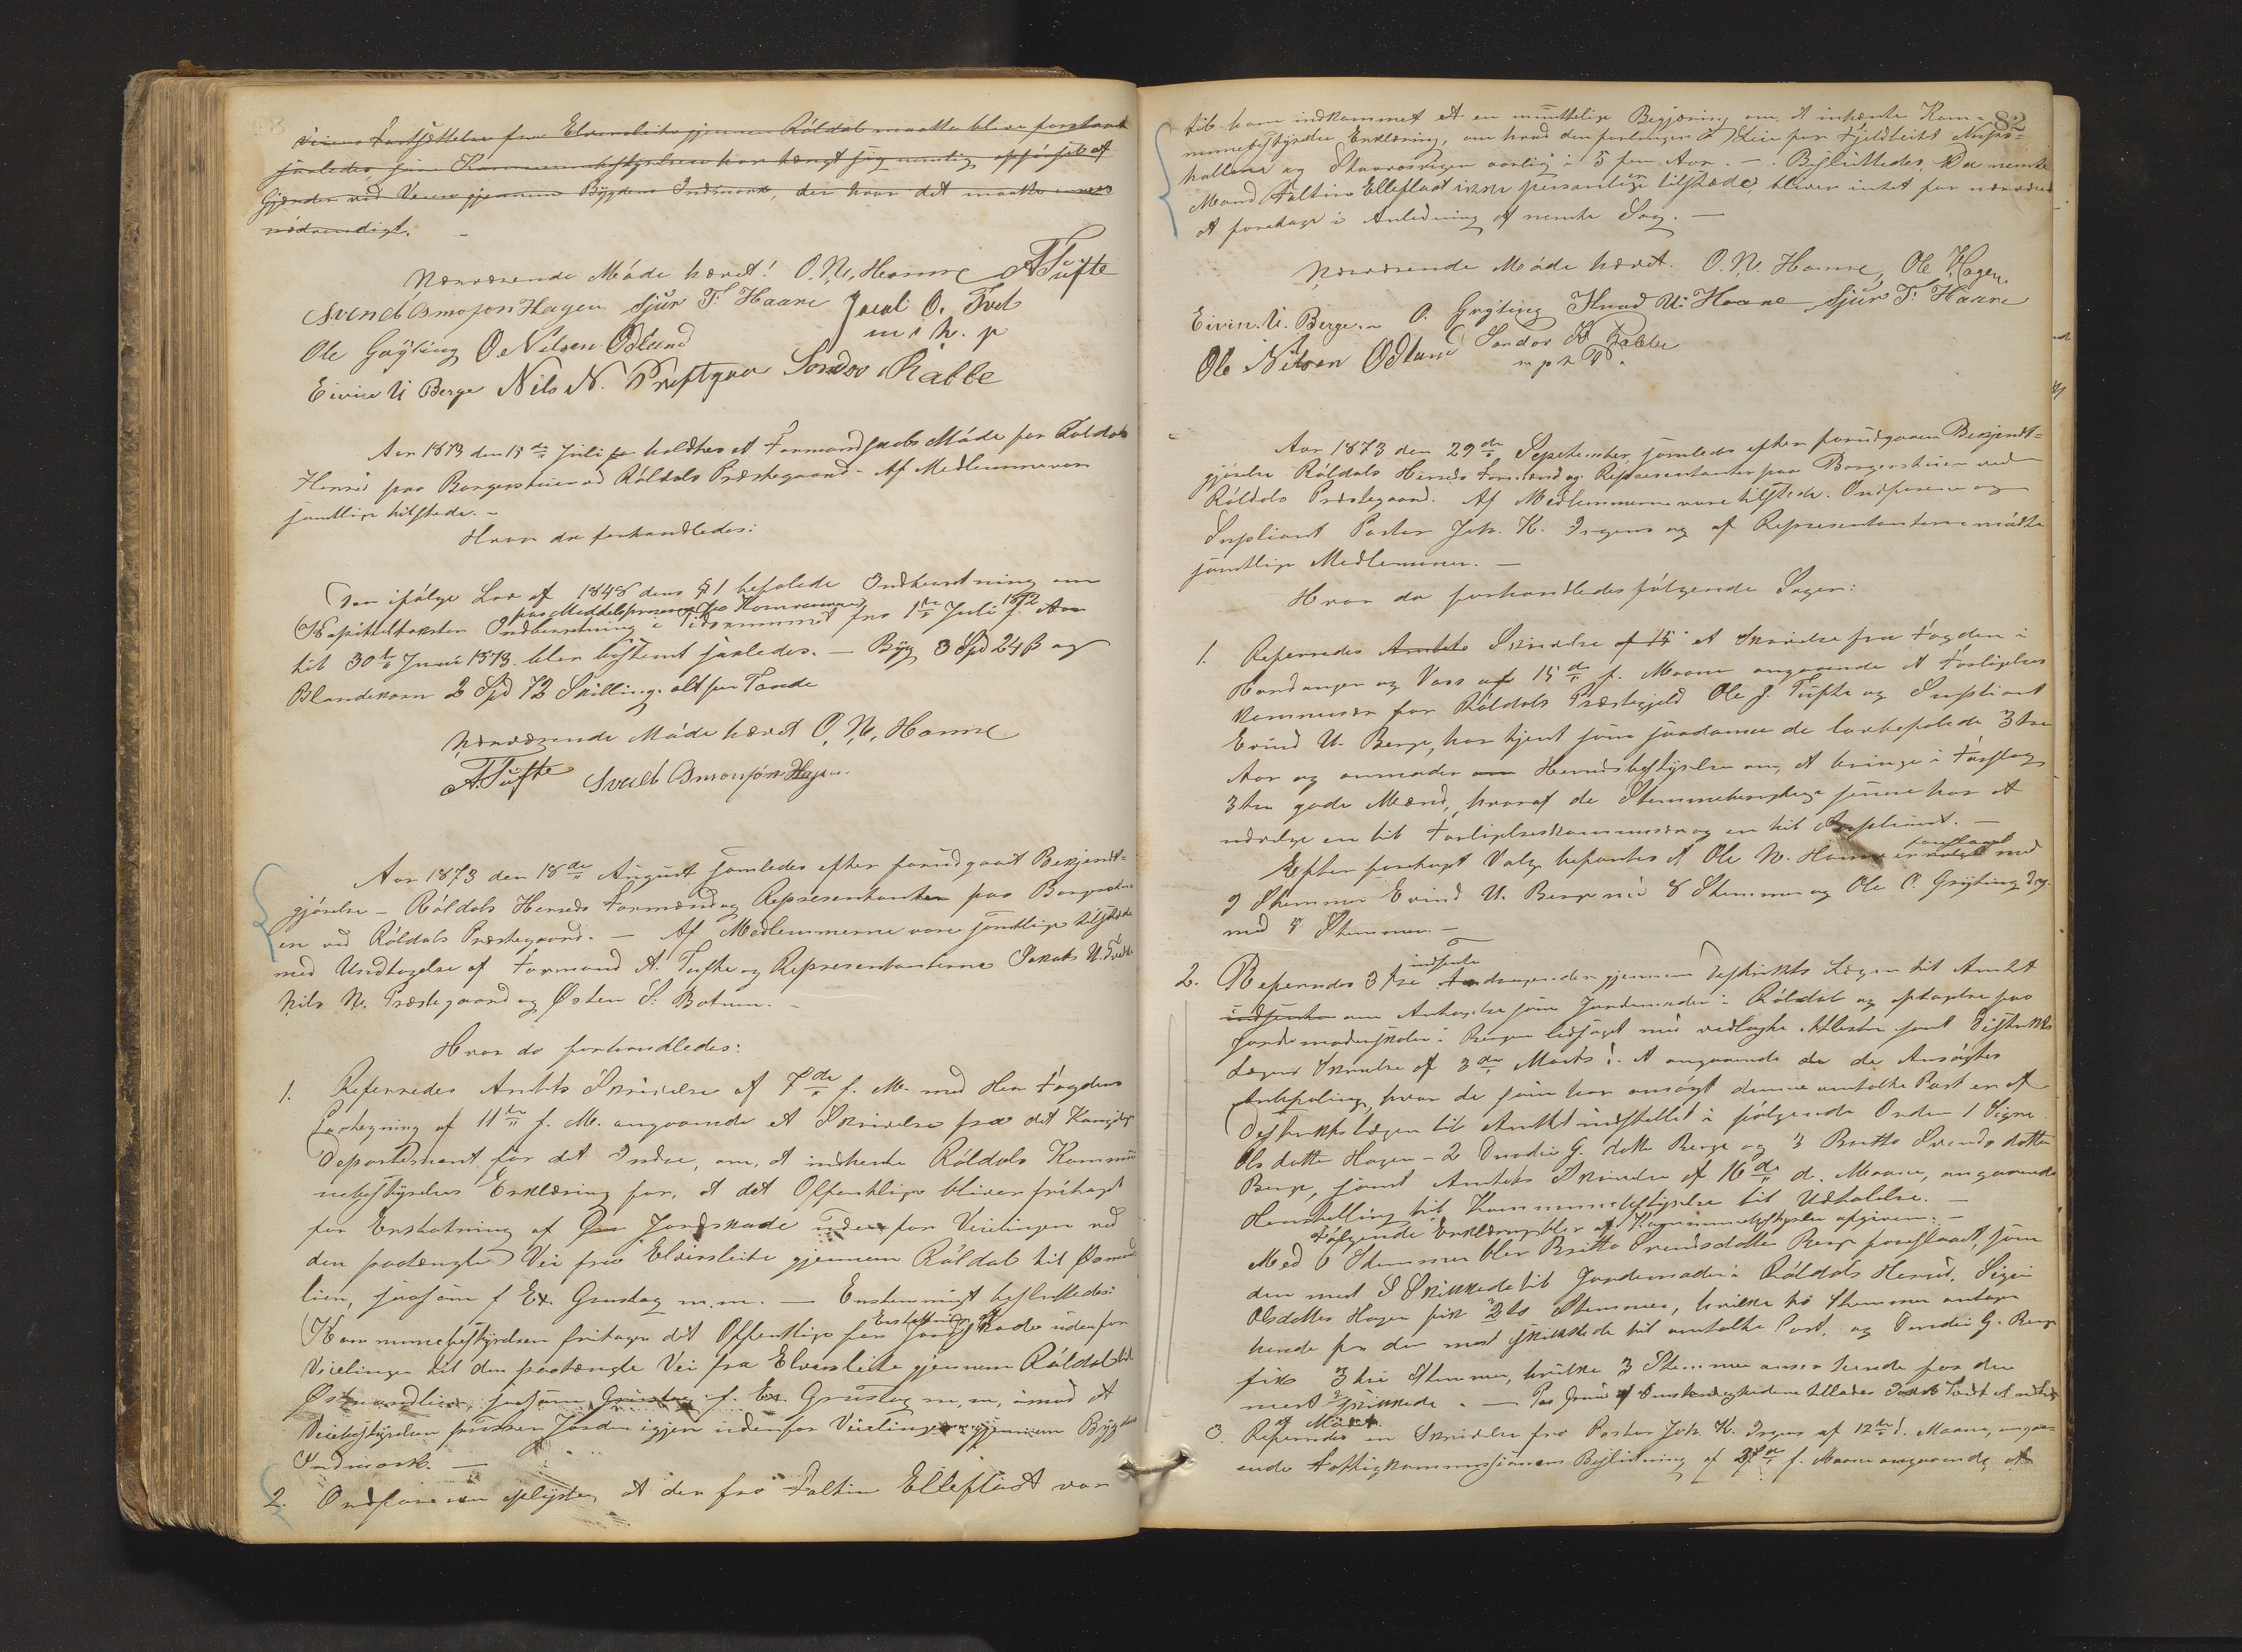 Veiens Fortsættelse fra Elversleite gjennem Röldal maatte blive forstaaet
saaledes, som Kommunebestyrelsen har tænkt sig nemlig opförsel af
Gjærder ved Veien gjennem Bygdens Indmark, der hvor det maatte være
nödvendigt. -
Nærværende Möde hævet! O. N. Hamre A Tufte
Svend Asmosson Hagen Sjur T. Haare Jacob O. Tvet
m. h. p
Ole Gryting O Nilsen Odland
Eivin U Berge Nils N. Prestgaar Sondov Rabbe
Aar 1873 den 15de Juli holdtes et Formandskabs Möde for Röldals
Herred paa Borgerstuen ved Röldals Præstegaard. Af Medlemmerne vare
samtlige tilstede. -
Hvor da forhandledes:
Den ifölge Lov af 1848 dens § 1 befalede Indberetning om
Kapitelstaksten paa Kornvarer
Indberetning i Tidsrummet fra 1ste Juli 1872
til 30te Juni 1873 blev bestemt saaledes. - Byg 3 Spd 24 ß og
Blandekorn 2 Spd 72 Skilling alt per Tönde
Nærværende Möde hævet O. N. Hamre
A. Tufte Svend Asmosson Hagen.
Aar 1873 den 18de August samledes efter forudgaaet Bekjendt=
gjörelse - Röldals Herreds Formænd og Repræsentanter paa Borgerstu=
en ved Röldals Præstegaard. - Af Medlemmerne vare samtlige tilstede
med Undtagelse af Formand A. Tufte og Repræsentanterne Jakob O. Tvedt
Nils N. Præstegaard og Østen S. Botnen. -
Hvor da forhandledes:
1. Refereredes Amtets Skrivelse af 7de f. M. med Herr Fogdens
Paategning af 11te f. M. angaaende et Skrivelse fra det Kongelige
Departement for det Indre, om, at indhente Röldals Kommu
nebestyrelses Erklæring for, at det Offentlige bliver fritaget
for Erstatning af Jordskade udenfor Veilinien ved
den paatænkte Vei fra Elversleite gjennem Röldal til Øsmund
lien, saasom f Ex. Grustag m.m. - Enstemmigt besluttedes:
Kommunebestyrelsen fritager det Offentlige for Erstatning af Jordskade udenfor
Veilinien til den paatænkte Vei fra Elversleite gjennem Röldal til
Østmandlien, saasom f. Ex. Grustag m, m, imod at
Veibestyrelsen Jorden igjen udenfor Veilinien gjennem Bygdens
Indmark. -
2. Ordföreren oplyste, at der fra Faltin Elleflaat var
82
til ham indkommet et en mundtlige Begjæring om, at indhente Kom=
munebestyrelse Erklæring, om hvad den forlanger i Leie for Fjeldbeitet
hallerne og aarlig i 5 fem Aar. - Besluttedes. Da nemte
Mand Faltin Elleflaat ikke er personlig tilstede, bliver intet for nærværende
at foretage i Anledning af nemte Sag. -
Nærværende Möde hævet. O. N. Hamre, Ole Hagen
Eivin. U. Berge. O. Gryting Knud U. Haare Sjur T. Haare
Ole Nilsen Odland Sondov Rabbe
m p h
Aar 1873 den 29de September samledes efter forudgaaen Bekjendt=
gjörelse Röldals Herreds Formænd og Repræsentanter paa Borgerstuen ved
Röldals Præstegaard. Af Medlemmerne vare tilstede. Ordförer og
Supliant Pastor Joh. K. Irgens og af Repræsentanterne mödte
samtlige Medlemmer. -
Hvor da forhandledes fölgende Sager:
1. Refereredes Amtets Skrivelse af 15 et Skrivelse fra Fogden i
Hardanger og Voss af 15de f. Maane angaaende at Forligelses
kommissær for Röldals Præstegjeld Ole J. Tufte og Supliant
Eivind U. Berge, har tjent som saadanne de lovbefalede 3 tre
Aar og anmoder om Herredsbestyrelsen om, at bringe i Forslag
3 tre gode Mænd, hvoraf de Stemmeberettigede senere har at
udvælge en til Forligelseskommissær og en til Supliant. -
Efter foretaget Valg befantes at Ole N. Hamre er foreslaaet valgt med
9 Stemmer Eivind U. Berge med 8 Stemmer og Ole O. Gryting
med 8 Stemmer. -
2. Refereredes 3 tre indsente Andragender gjennem Destriktslægen til Amtet
indsente om Antagelse som Jordemoder i Röldal og optagelse paa
Jordemoderskolen i Bergen ledsaget med vedlagte Attester samt Distrikts
Lægens Skrivelse af 3de Marts d. A angaaende de Ansögtes
Anbefaling, hvor de som har ansögt denne omtalte Post er af
Destriktslægen til Amtet indstillet i fölgende Orden 1 Signe
Olsdatter Hagen - 2 G. datter Berge og 3 Britta Svendsdatter
Berge, samt Amtets Skrivelse af 16de d. Maane, angaaende
Henstilling til Kommunebestyrelse til Udtalelse. -
Fölgende Erklæring blev af Kommunebestyrelse afgiven: -
Med 6 Stemmer blev Britta Svendsdatter Berge foreslaaet, som
den mest Skikkede til Jordemoder i Röldals Herred. Signe
Olsdatter Hagen fik 2 to Stemmer, hvilke to Stemmer antager
hende for den mest skikkede til omtalte Post, og G. Berge
fik 3 tre Stemmer, hvilke 3 Stemmer anser hende for den
mest skikkede. - Paa Grund af Omstændighederne tillades Jakob Tvedt at
af Mödet.
3. Refereredes en Skrivelse fra Pastor Joh. K. Irgens af 12te d. Maane, angaa=
ende Fattigkommissionens Beslutning af 27de f. Maane angaaende, at